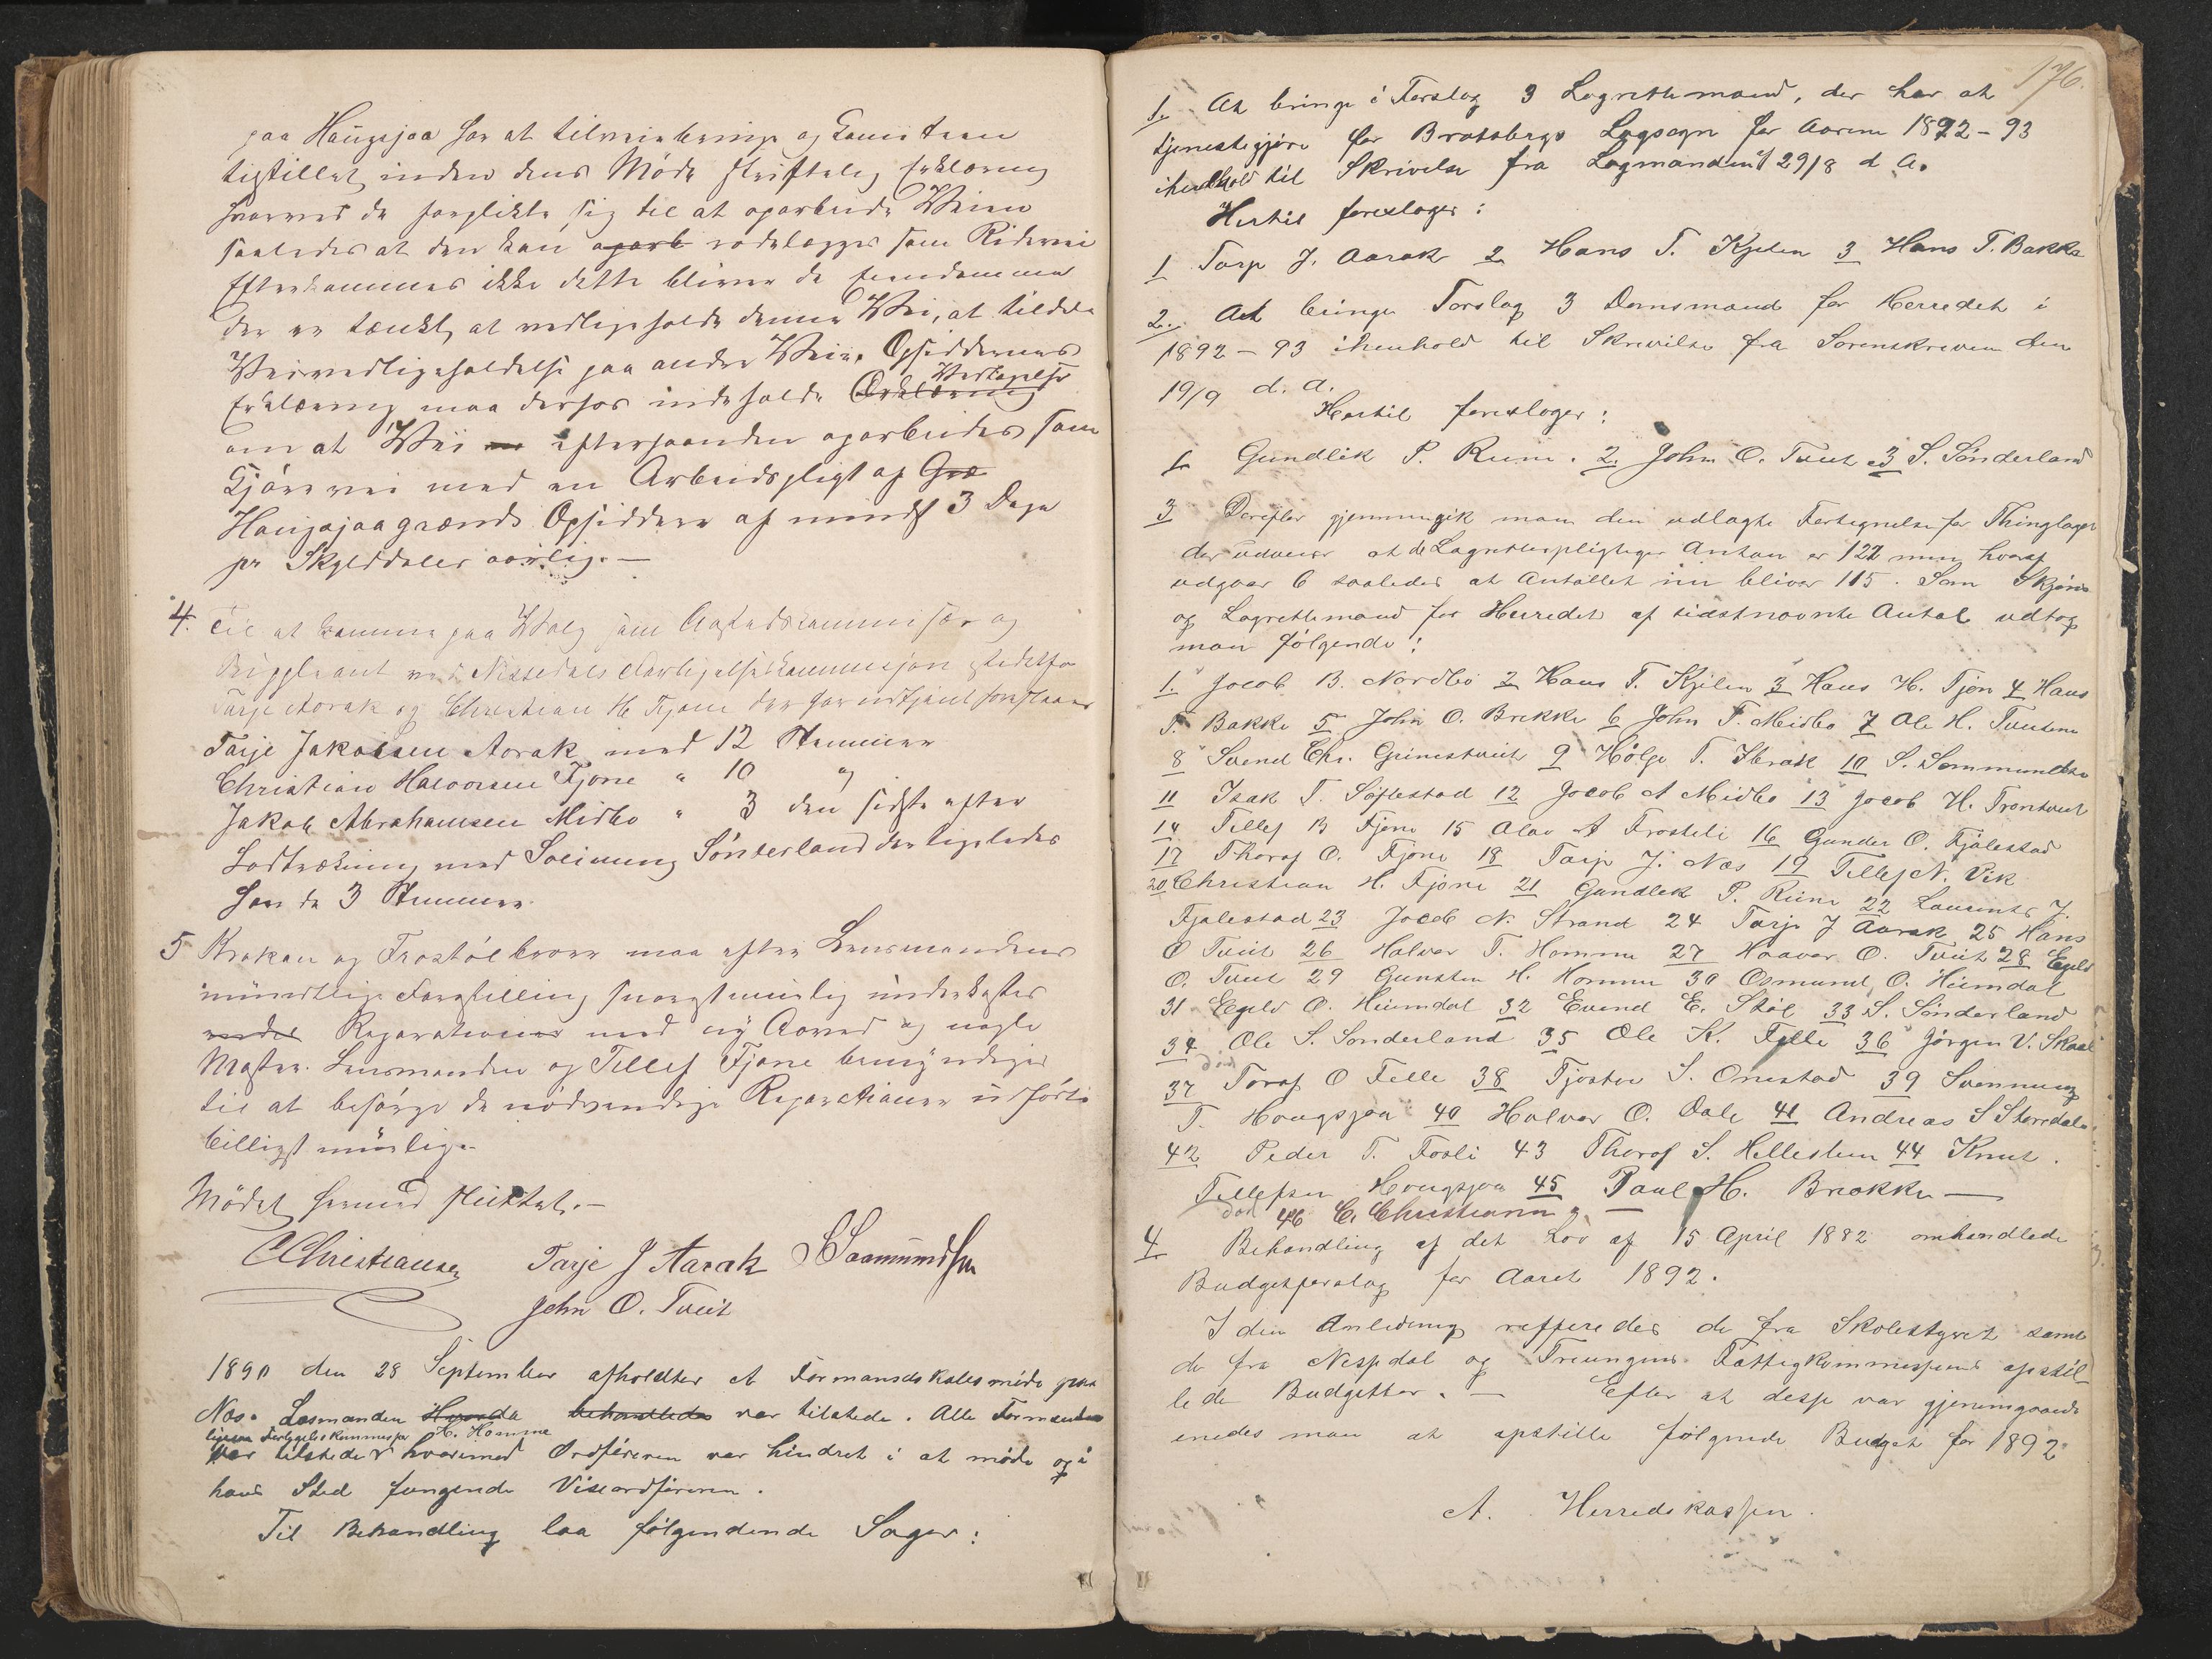 paa Haugsjaa har at tilveiebringe og Komiteen
tilstillet inden dens Möde skriftelig Erklæring
hvorved de forpligte sig til at oparbeide Veien
saaledes at den kan oparb rodelægges som Ridevei
Efterkommes ikke dette bliver de Eiendomme
der er tænkt at vedligeholde denne Vei, at tildele
Veivedligeholdelse paa andre Veie. Opsiddernes
Vedtagelse
Erklæring maa derfor indeholde Erklæring
om at Vei efterhaanden oparbeides som
Kjørevei med en Arbeidspligt af Græ
Haugsjaagrænds Opsiddere af mindst 3 Dage
pr Skylddaler aarlig. —
4. Til at komme paa Valg som og
Suppleant ved Nissedals Forligelseskommisjon istedetfor
Tarje Aorak og Christian H. Fjone der har udtjent
Tarje Jakobsen Aorak med 12 Stemmer
Christian Halvorsen Fjone " 10 "
Jakob Abrahamsen Midbo " 3 den sidste efter
Lodtrækning med Solimung Sönderland der ligeledes
havde 3 Stemmer.
5 Krokan og Frostöl broer maa efter Lensmandens
mundtlige Forestilling snarest muelig underkastes
Reparationer med ny Aaved og nogle
Master. Lensmanden og Tellef Fjone bemyndiges
til at besørge de nødvendige Reparationer udførte
billigst muelig.
Mödet hermed sluttet. —
C Christiansen Tarje J Aarak S Saamundsen
John O. Tveit
1891 den 28 September afholdtes et Formandskabsmöde paa
Næs. Lensmanden Hvorda behandledes var tilstede. Alle Formænd
ligesom Forlygelseskommissær H. Homme
var tilstede hvorimod Ordföreren var hindret i at möde og i
hans Sted fungerede Viseordföreren.
Til Behandling laa følgendende Sager:
176.
1. At bringe i Forslag 3 Lagrettemænd, der har at
tjenestegjöre for Bratsbergs Lagsogn for Aarene 1892 - 93
ihenhold til Skrivelse fra Lagmanden af 29/8 d. A.
Hertil foreslages:
1 Tarje J. Aarak 2 Hans T. Kjelen 3 Hans T. Bakka
2. At bringe Forslag 3 Domsmænd for Herredet i
1892 - 93 ihenhold til Skrivelse fra Sorenskriveren den
19/9 d. A.
Hertil foreslages:
1 Gundlik P. Rime. 2. John O. Tveit 3 S. Sönderland
3 Derefter gjennemgik man den udlagte Fortegnelse for Thinglaget
der udviser at de Lagrettespligtiges Antan er 121 men hvoraf
udgaar 6 saaledes at Antallet nu bliver 115. Som Skjöns
og Lagrettemænd for Herredet af sidstnævnte Antal udtog
man følgende:
1. Jacob B. Nordbö 2 Hans T. Kjilen 3 Hans H. Tjön 4 Hans
T. Bakke 5 John O. Brekke 6 John T. Midbo 7 Ole H. Tveitene
8 Svend Chr. Grimestveit 9 Hölje T. Ibrak 10 S. Sammundsen
11 Isak T. Söftestad 12 Jacob A Midbo 13 Jacob H. Trontveit
14 Tellef B Fjone 15 Olav A Frosteli 16 Gunder O. Fjälestad
17 Thoraf O. Fjone 18 Tarje J. Næs 19 Tellef N. Vik
20 Christian H. Fjone 21 Gundlek P. Rime 22 Laurents J.
Fjalestad 23 Jacob N. Strand 24 Tarje J Aarak 25 Hans
O Tveit 26 Halvor T. Homme 27 Haavar O. Tveit 28 Egild
O. Tveit 29 Gunsten H. Homme 30 Osmund O. Heimdal
31 Egild O. Heimdal 32 Evend E. Stöl 33 S. Sönderland
34 Ole S. Sönderland 35 Ole K. Felle 36 Jörgen V. Skaal
död
37 Toraf O Felle 38 Tjostov S. Onestad 39 Svennung
T. Hougsjaa 40 Halvor O. Dale 41 Andreas S Storedale
42 Peder T. Fosli 43 Thorof S. Hellestem 44 Knut
Tellefsen Hougsjaa 45 Paul H. Brekke —
död 46 C. Christiansen
4 Behandling af det Lov af 15 April 1882 omhandlede
Budgetforslag for Aaret 1892.
I den Anledning refferedes de fra Skolestyret samt
de fra Nesdal og Treungens Fattigkommisjoner opstil-
lede Budgetter. — Efter at desse var gjennemgaaede
enedes man at opstille følgende Budget for 1892
A. Herredskassen.